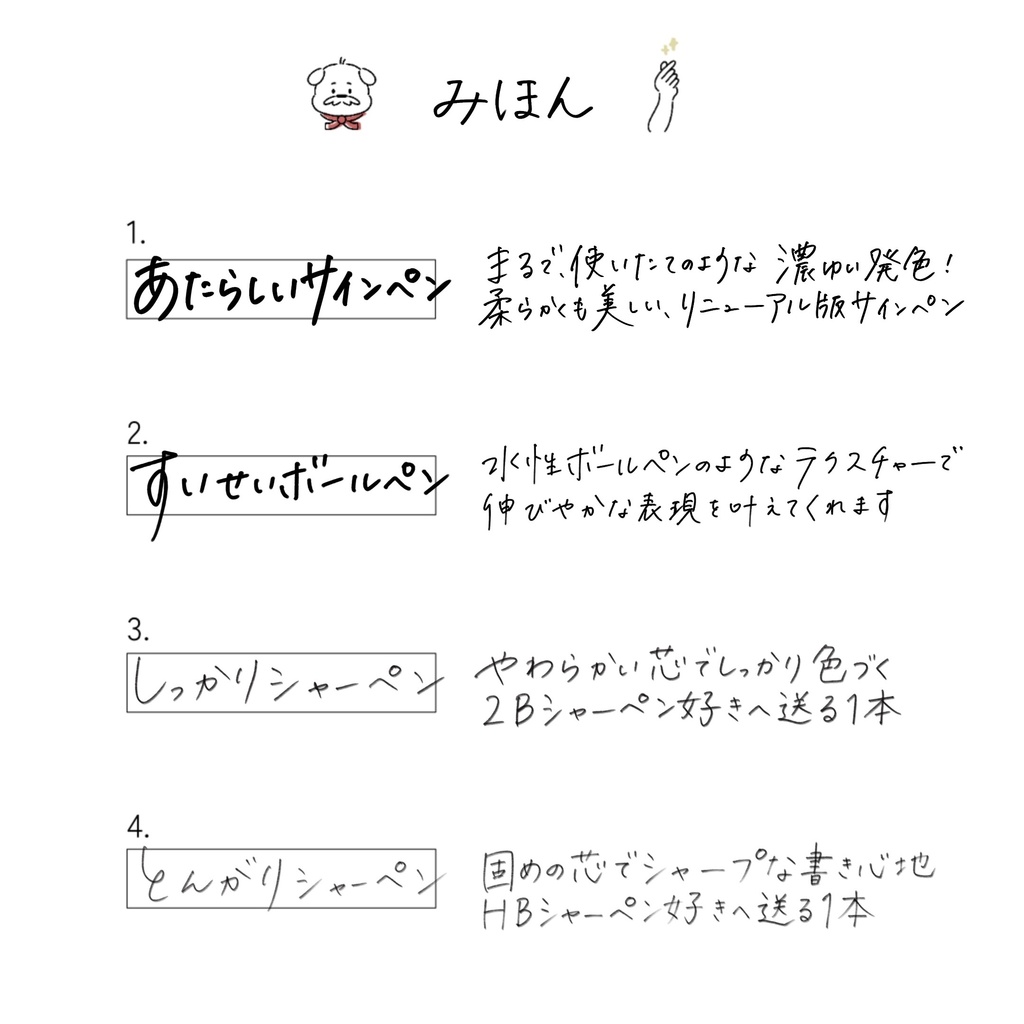 みほん
1.
あたらしいサインペン
まるで、使いたてのような 濃ゆい発色！
柔らかくも美しい、リニューアル版サインペン
2.
すいせいボールペン
水性ボールペンのようなテクスチャーで
伸びやかな表現を叶えてくれます
3.
しっかりシャーペン
やわらかい芯でしっかり色づく
2Bシャーペン好きへ送る1本
4.
とんがりシャーペン
固めの芯でシャープな書き心地
HBシャーペン好きへ送る1本